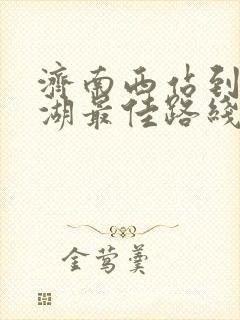 濟南西佔到
湖最佳路綫
金莺羹